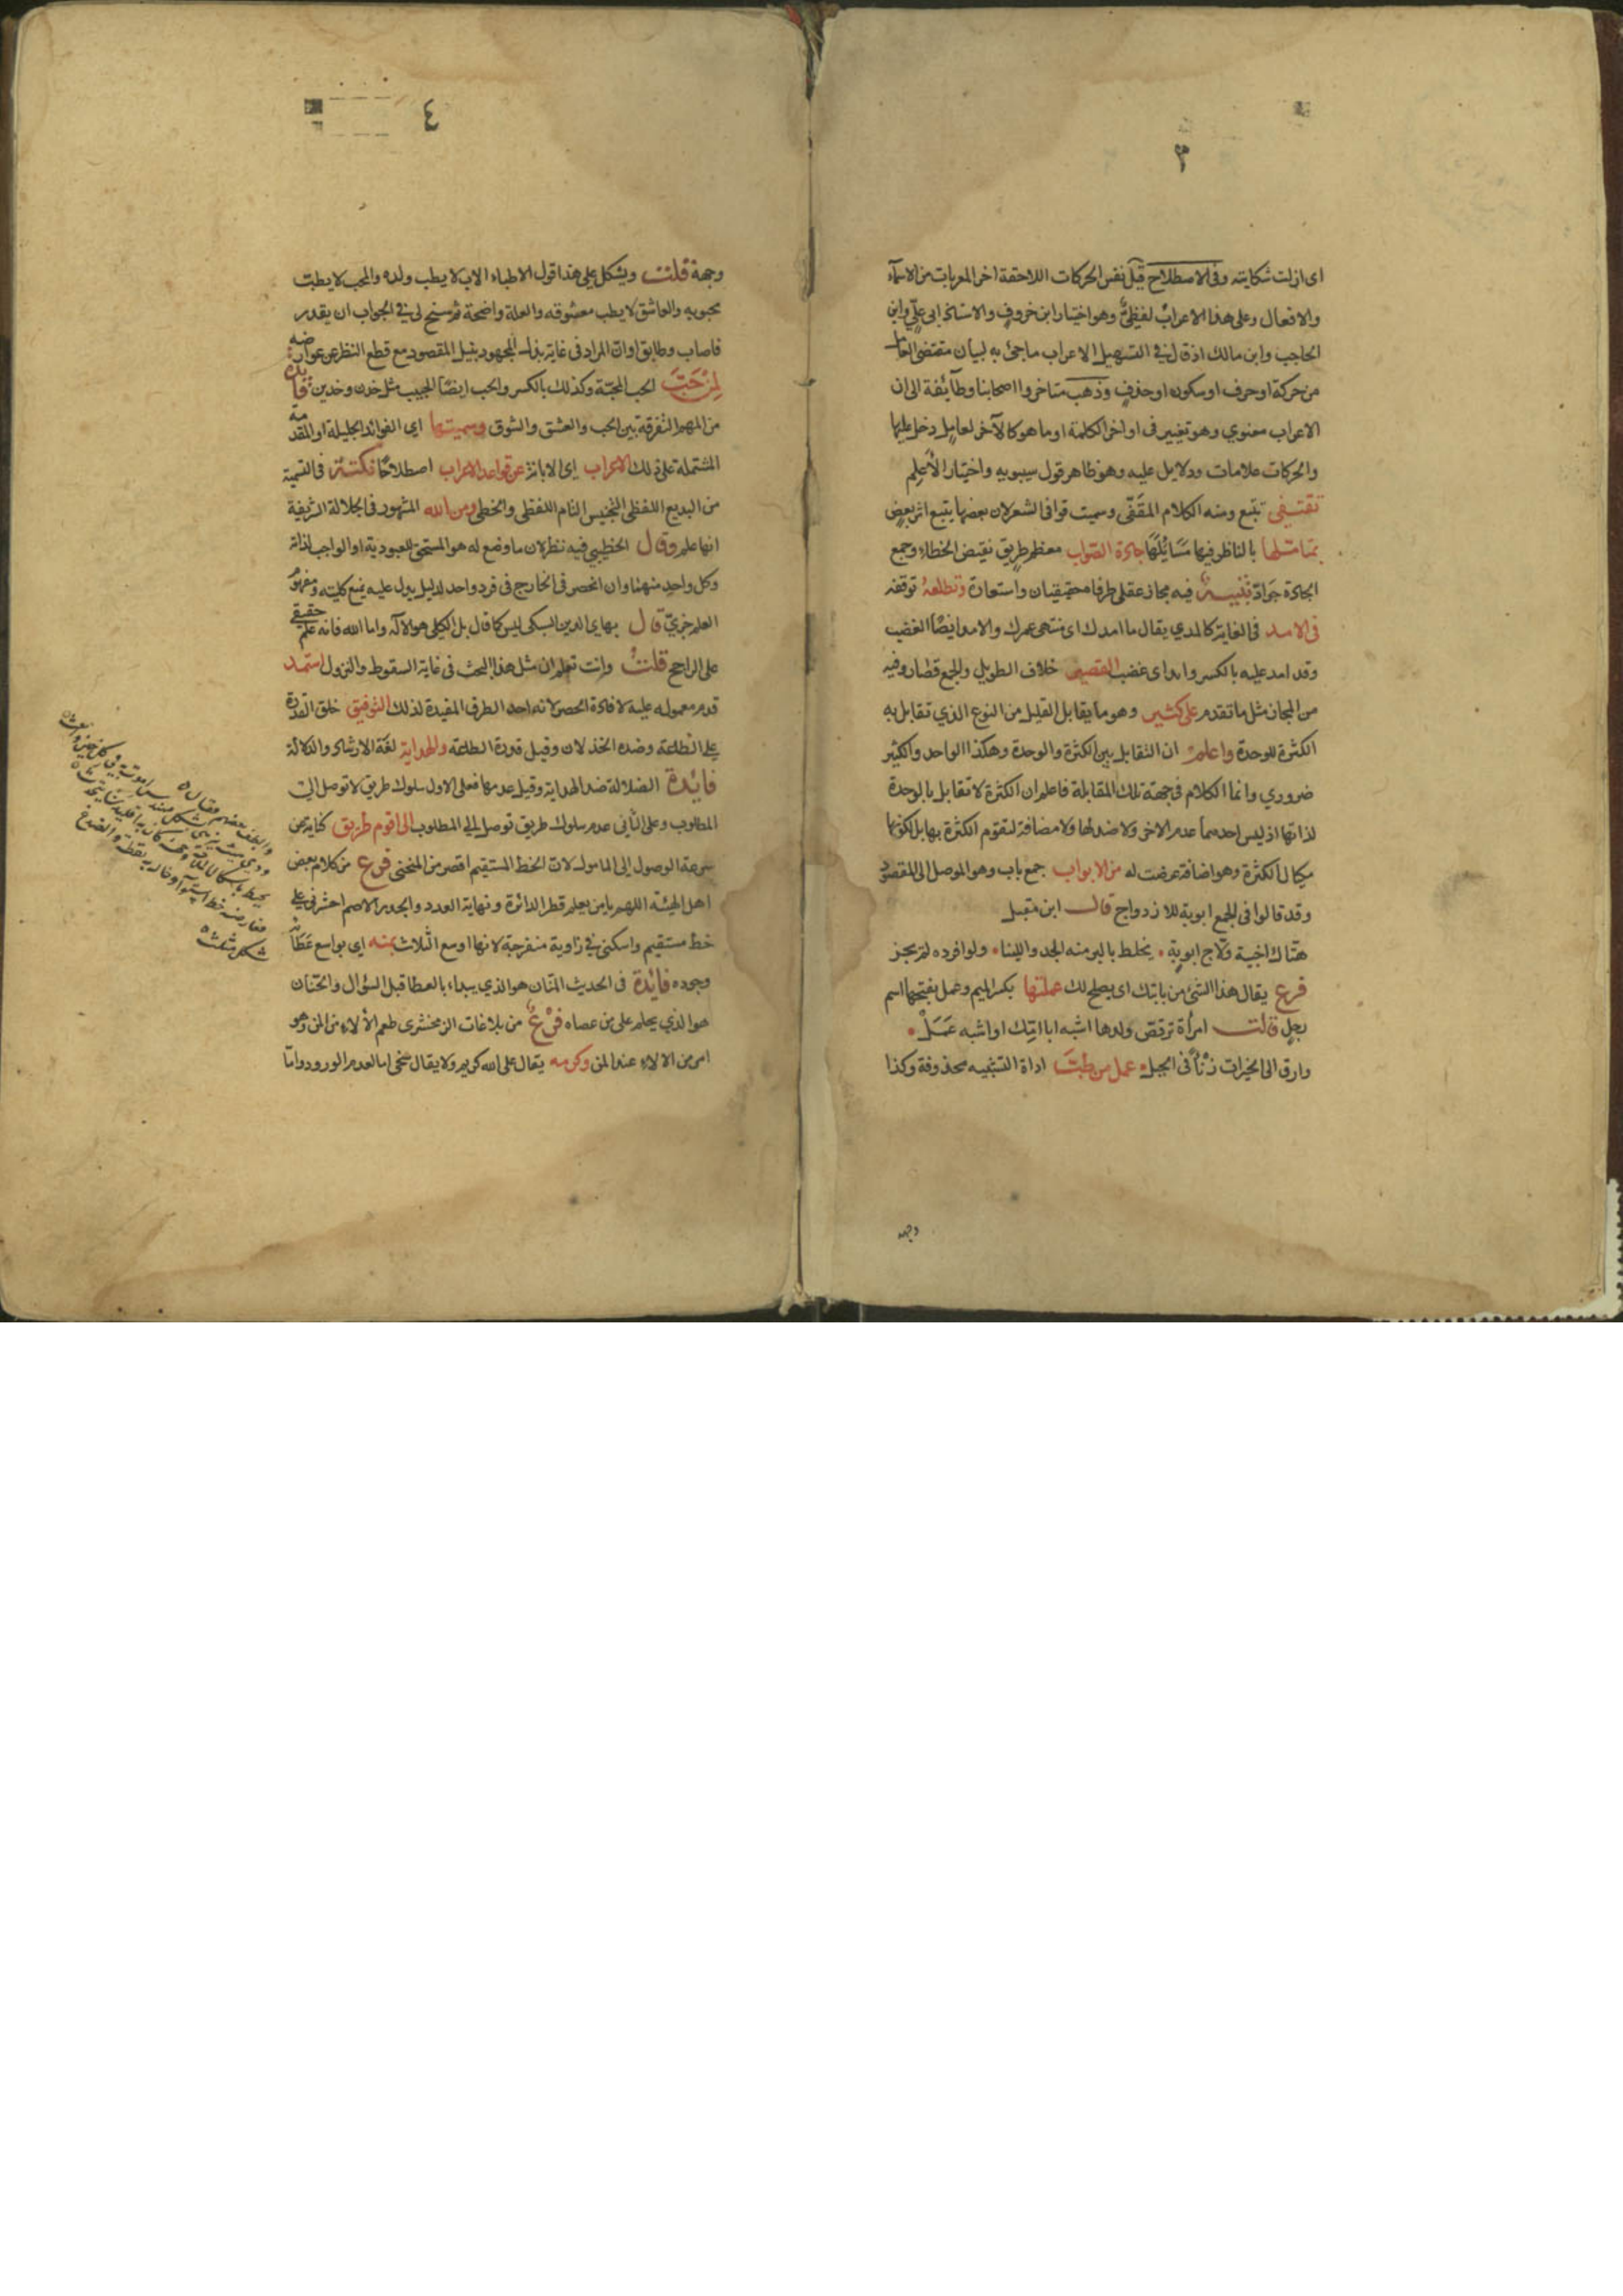 ٣
اى ازلت شكايته وفى الاصطلاح قيل نفس الحركات اللاحقة اخر المعربات من الاسماء
والافعال وعلى هذا الاعراب لفظىٌّ وهو اختيار ابن خروف والاستاذ ابى على وابن
الحاجب وابن مالك اذ قال فى التسهيل الاعراب ماجئ به لبيان مقتضى العامل
من حركة او حرف او سكون او حذف وذهب متاخروا اصحابنا وطائفة الى ان
الاعراب معنوي وهو تغيير فى اواخر الكلمة او ما هو كالآخر لعامل دخل عليها
والحركات علامات ودلايل عليه وهو ظاهر قول سيبويه واختيار الأعلم
تقتفى تتبع ومنه الكلام المقفّى وسميت قوافى الشعر لان بعضها يتبع اثر بعض
بمتاملها بالناظر فيها مسائلها جادة الصواب معظم طريق نقيض الخطاء وجمع
الجادة جوادّ تنبيه فيه مجاز عقلى طرفاه حقيقيان واستعارة وتطلعه توقفه
فى الامد فى الغاية كالمدي يقال ما امدك اى منتهى عمرك والامد ايضًا الغضب
وقد امد عليه بالكسر وابد اى غضب القصير خلاف الطويل والجمع قصار وفيه
من المجاز مثل ما تقدم على كثير وهو ما يقابل القليل من النوع الذي تقابل به
الكثرة للوحدة واعلم ان التقابل بين الكثرة والوحدة وهكذا الواحد والكثير
ضروري وانما الكلام فى جهة تلك المقابلة فاعلم ان الكثرة لا تقابل بالوحدة
لذاتها اذ ليس احدهما عدم الاخر ولا ضد لها ولا مضافة لتقوم الكثرة بها بل لكونها
مكيال الكثرة وهو اضافة عرضت له من الابواب جمع باب وهو الموصل الى المقصود
وقد قالوا فى الجمع ابوبة للازدواج قال ابن مقبل
هتاك اخبية ولاج ابوبةٍ • يخلط بالبر منه الجد واللينا • ولو افرده لم يجز
فرع يقال هذا الشئ من بابتك اى يصلح لك عملتها بكسر الميم وعمل بفتحها اسم
رجل قالت امرأة ترقص ولدها اشبه ابا امك او اشبه عمل •
وارق الى الخيرات زنأ فى الجبل • عمل من طبَّ اداة التشبيه محذوفة وكذا
وجهه
٤
وجهة قلت ويشكل على هذا قول الاطباء الاب لا يطب ولده والمحب لا يطب
محبوبه والعاشق لا يطب معشوقه والعلة واضحة ثم سنح لى فى الجواب ان يقدر
فاصاب وطابق او ان المراد فى غاية بذل المجهود بنيل المقصود مع قطع النظر عن عوارضه
لمن حبَّ الحب المحبة وكذلك بالكسر والحب ايضًا الحبيب مثل خدن وخدين فائدة
من المهم التفرقة بين الحب والعشق والشوق وسميتها اى الفوائد الجليلة او المقدمة
المشتملة على ذلك الاعراب اى الابانة عن قواعد الاعراب اصطلاحًا نكتة فى التسمية
من البديع اللفظى التجنيس التام اللفظى والخطى ومن الله المشهور فى الجلالة الشريفة
انها علم وقال الخطيبى فيه نظر لان ما وضع له هو المستحق للعبودية او الواجب لذاته
وكل واحد منهما وان انحصر فى الخارج فى فرد واحد لدليل يدل عليه لم يمنع كليته ومفهوم
العلم جزئ قال بهاى الدين السبكى ليس كما قال بل الكلى هو الاله واما الله فانه علم حقيقى
على الراجح قلت وانت تعلم ان مثل هذا البحث فى غاية السقوط والنزول استمد
قدم معموله عليه لافادة الحصر لانه احد الطرق المفيدة لذلك التوفيق خلق القدرة
على الطاعة وضده الخذلان وقيل قدرة الطاعة والهداية لغة الارشاد والدلالة
فائدة الضلالة ضد الهداية وقيل عدمها فعلى الاول سلوك طريق لا توصل الى
المطلوب وعلى الثانى عدم سلوك طريق توصل الى المطلوب الى اقوم طريق كناية عن
سرعة الوصول الى المامول لان الخط المستقيم اقصر من المنحنى فرع من كلام بعض
اهل الهيئة اللهم يا من يعلم قطر الدائرة ونهاية العدد والجدر الاصم احشرنى على
خط مستقيم واسكنى فى زاوية منفرجة لانها اوسع الثلاث بمنه اى بواسع عطائه
وجوده فائدة فى الحديث المنان هو الذي يبداء بالعطا قبل السؤال والحنان
هو الذي يحلم على من عصاه فرع من بلاغات الزمخشرى طعم الألاء من المن وهو
امر من الالاء عند المن وكرمه يقال على الله كريم ولا يقال سخى اما لعدم الورود واما